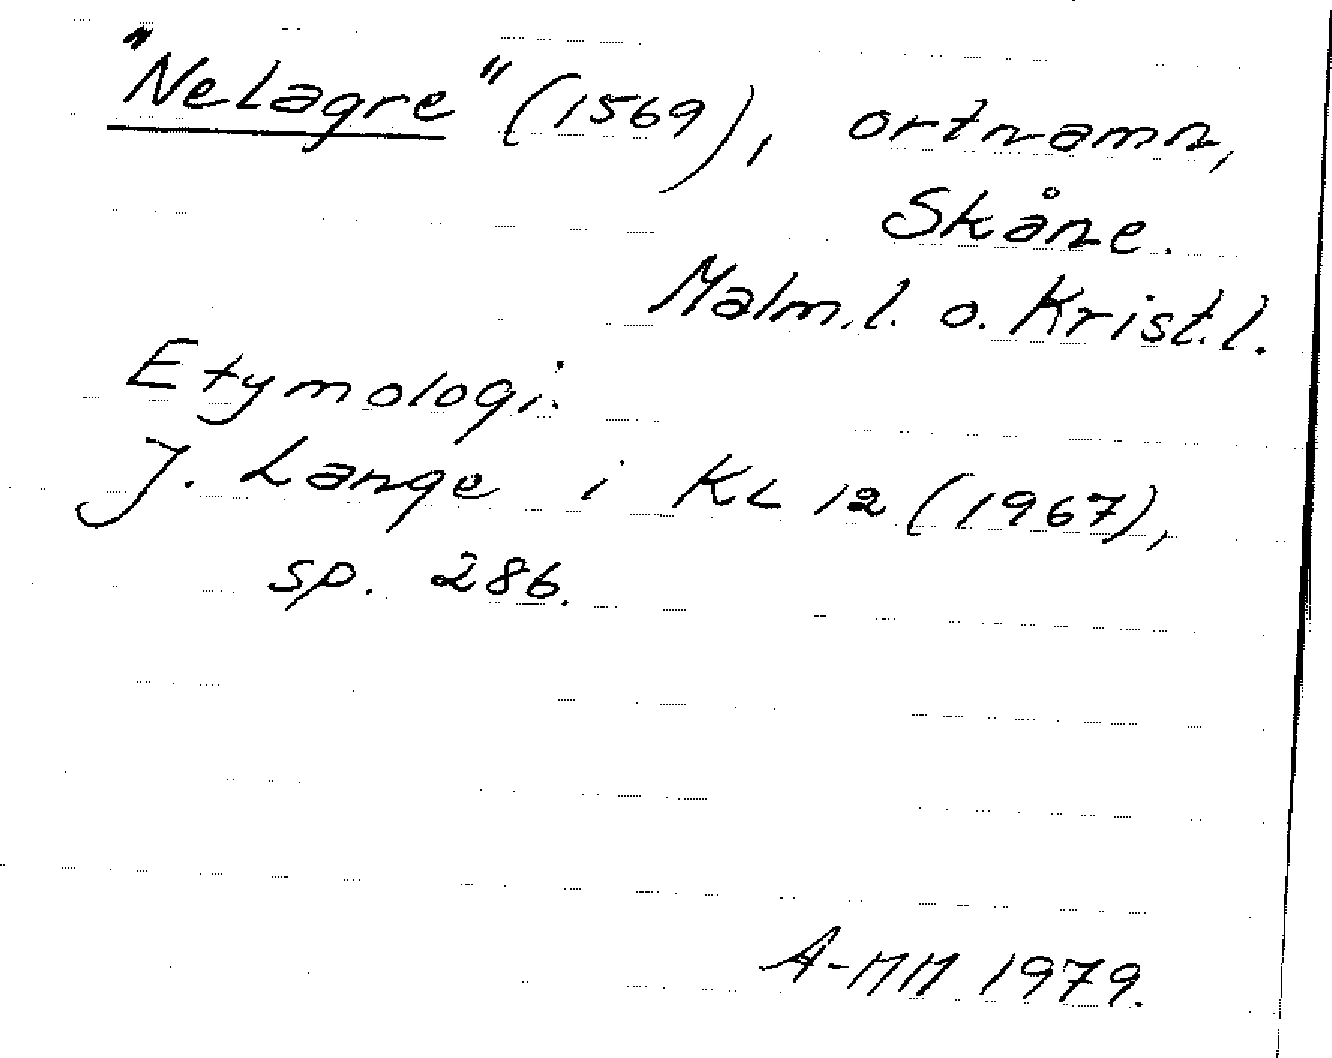 "Nelagre" (1569), ortnamn,
Skåne.
Malm.l. o. Krist.l.
Etymologi:
J. Lange i KL 12 (1967),
sp. 286.
A-MM 1979.